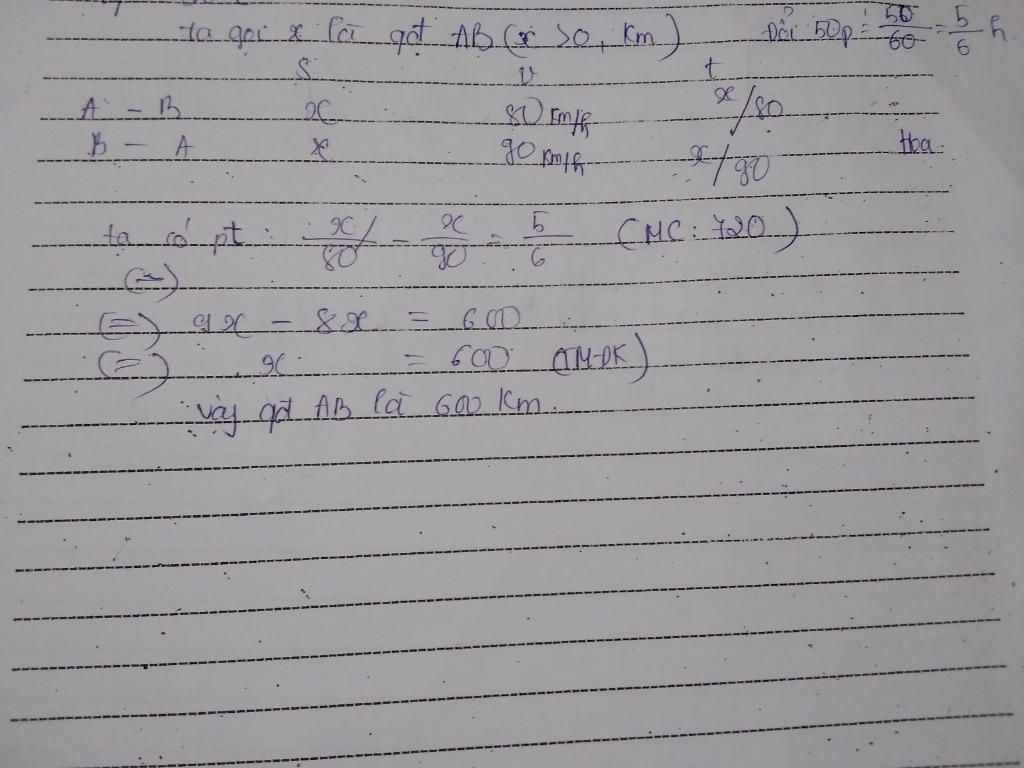 ta gọi x là qđt AB (x >0, Km) Đổi 50p = 50/60 = 5/6 h
S v t
A - B x 80 Km/h x/80
B - A x 90 Km/h x/90 Hoa
ta có pt : x/80 - x/90 = 5/6 (MC: 720)
(=)
(=) 9x - 8x = 600
(=) x = 600 (TMĐK)
vậy qđt AB là 600 Km.